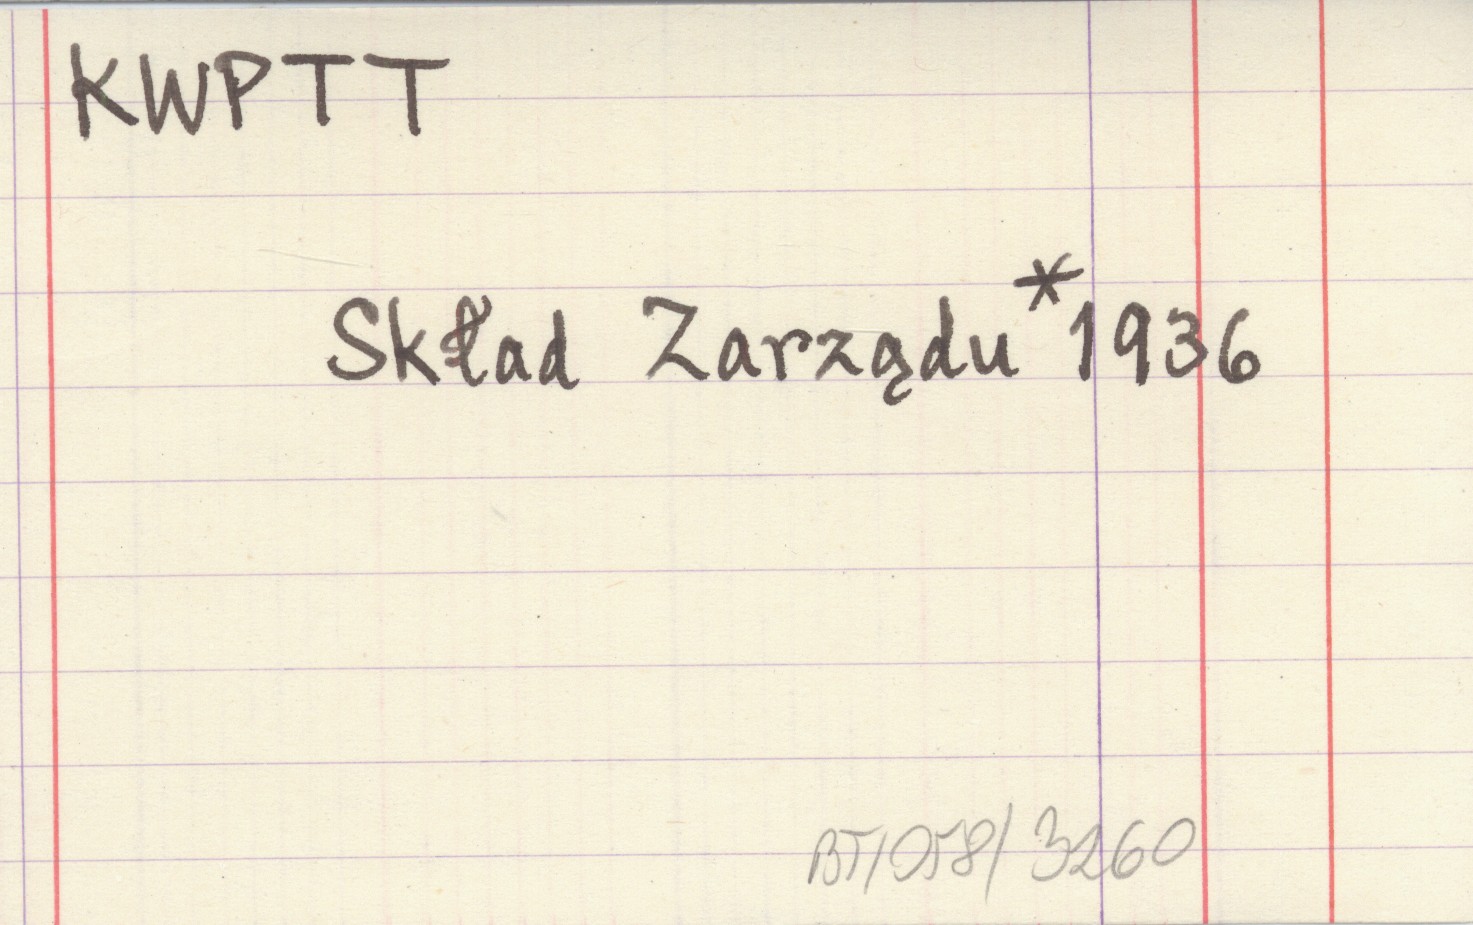 KWPTT
Skład Zarządu* 1936
BT/058/3260